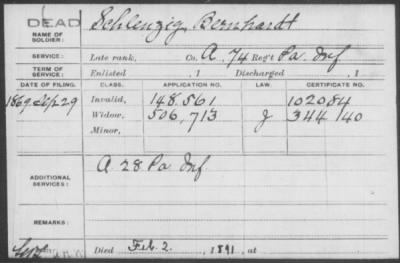 DEAD
NAME OF SOLDIER: Schlenzig, Bernhardt
SERVICE: Late rank, Co. A, 74 Reg't Pa. Inf
TERM OF SERVICE: Enlisted , 1 Discharged , 1
DATE OF FILING. CLASS. APPLICATION NO. LAW. CERTIFICATE NO.
1869 Sep 29 Invalid, 148.561 102084
Widow, 506,713 J 344140
Minor,
ADDITIONAL SERVICES: A 28 Pa Inf
REMARKS:
Died Feb. 2. , 1891, at